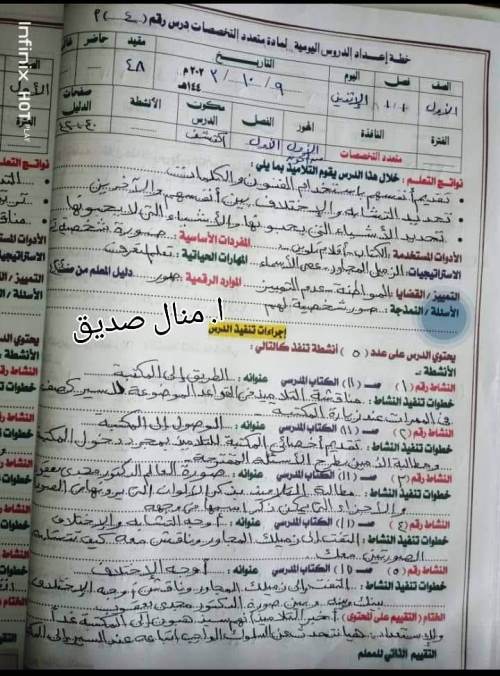 خطة إعداد الدروس اليومية لمادة متعدد التخصصات درس رقم (٤)
الصف
فصل
اليوم
التاريخ
مقيد
حاضر
الأول
١/١
الإثنين
٩ / ١٠ / ٢٠٢٣ م
١٤٤ هـ
٤٨
الفترة
النافذة
المحور
الفصل
مكون الدرس
الأنشطة
صفحات الدليل
متعدد التخصصات
الأول
الأول
اكتشف
نواتج التعلم : خلال هذا الدرس يقوم التلاميذ بما يلي :
• تقديم أنفسهم باستخدام الفنون والكلمات
• تحديد التشابه والاختلاف بين أنفسهم والآخرين
• تحديد الأشياء التي يحبونها والأشياء التي لا يحبونها
الأدوات المستخدمة : الكتاب - أقلام تلوين المفردات الأساسية : صورة شخصية
الاستراتيجيات : الزميل المجاور - عصى الأسماء المهارات الحياتية : تعلم لتعرف
التمييز / القضايا : المواطنة - عدم التمييز الموارد الرقمية : صور دليل المعلم من ص
الأسئلة / النمذجة : صور شخصية لهم
ا. منال صديق
إجراءات تنفيذ الدرس
يحتوي الدرس على عدد (٥) أنشطة تنفذ كالتالي :
الأنشطة :
النشاط رقم (١) صـ (١١) الكتاب المدرسي عنوانه : الطريق إلى المكتبة
خطوات تنفيذ النشاط : مناقشة التلاميذ في القواعد الموضوعة للسير كصف
في الممرات عند زيارة المكتبة
النشاط رقم (٢) صـ (١١) الكتاب المدرسي عنوانه : الوصول إلى المكتبة
خطوات تنفيذ النشاط : تقديم أخصائي المكتبة للتلاميذ بمجرد دخول المكتبة
ومطالبة التلاميذ بطرح الأسئلة المقترحة
النشاط رقم (٣) صـ (١١) الكتاب المدرسي عنوانه : صورة العالم الدكتور مجدي يعقوب
خطوات تنفيذ النشاط : مطالبة التلاميذ بذكر الألوان التي يرونها في الصورة
والأجزاء التي يمكن ذكر اسمها في وجهه
النشاط رقم (٤) صـ (١١) الكتاب المدرسي عنوانه : أوجه التشابه والاختلاف
خطوات تنفيذ النشاط : التفت إلى زميلك المجاور وناقش معه كيف تتشابه
الصورتين معك
النشاط رقم (٥) صـ (١١) الكتاب المدرسي عنوانه : أوجه الاختلاف
خطوات تنفيذ النشاط : التفت إلى زميلك المجاور وناقش أوجه الاختلاف
بينك وبينه وبين صورة الدكتور مجدي يعقوب
الختام (التقييم على المحتوى) : أخبر التلاميذ أنهم سيذهبون إلى المكتبة غداً
وللاستعداد هيا نتحدث عن السلوك الواجب اتباعه عند السير إلى المكتبة
التقييم الذاتي للمعلم
Infinix HOT